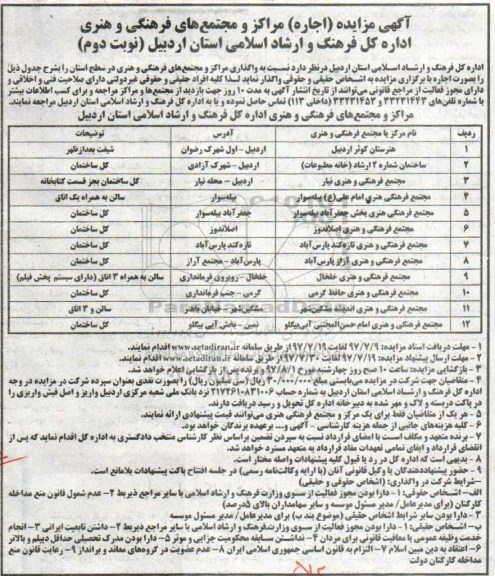 آگهی مزایده (اجاره) مراکز و مجتمع‌های فرهنگی و هنری
اداره کل فرهنگ و ارشاد اسلامی استان اردبیل (نوبت دوم)
اداره کل فرهنگ و ارشاد اسلامی استان اردبیل در نظر دارد نسبت به واگذاری مراکز و مجتمع‌های فرهنگی و هنری در سطح استان را بشرح جدول ذیل
را بصورت اجاره با برگزاری مزایده به اشخاص حقیقی و حقوقی واگذار نماید لذا کلیه افراد حقیقی و حقوقی غیردولتی دارای صلاحیت فنی و اخلاقی و
دارای مجوز فعالیت از مراجع قانونی می‌توانند از تاریخ انتشار آگهی به مدت ۱۰ روز جهت بازدید از مجتمع‌ها و مراکز مراجعه و برای کسب اطلاعات بیشتر
با شماره تلفن‌های ۳۳۲۳۱۴۴۳ و ۳۳۲۳۱۴۵۳ (داخلی ۱۱۳) تماس حاصل نموده و یا به اداره کل فرهنگ و ارشاد اسلامی استان اردبیل مراجعه نمایند.
مراکز و مجتمع‌های فرهنگی و هنری اداره کل فرهنگ و ارشاد اسلامی استان اردبیل
ردیف نام مرکز یا مجتمع فرهنگی و هنری آدرس توضیحات
۱ هنرستان کوثر اردبیل اردبیل – اول شهرک رضوان شیفت بعدازظهر
۲ ساختمان شماره ۲ ارشاد (خانه مطبوعات) اردبیل – شهرک آزادی کل ساختمان
۳ مجتمع فرهنگی و هنری نیار اردبیل – محله نیار کل ساختمان بجز قسمت کتابخانه
۴ مجتمع فرهنگی هنری امام علی(ع) بیله‌سوار بیله‌سوار سالن به همراه یک اتاق
۵ مجتمع فرهنگی هنری بخش جعفرآباد بیله‌سوار جعفرآباد بیله‌سوار کل ساختمان
۶ مجتمع فرهنگی و هنری اصلاندوز اصلاندوز کل ساختمان
۷ مجتمع فرهنگی و هنری تازه‌کند پارس‌آباد تازه‌کند پارس‌آباد کل ساختمان
۸ مجتمع فرهنگی و هنری آراز پارس‌آباد پارس‌آباد – مجتمع آراز کل ساختمان
۹ مجتمع فرهنگی و هنری خلخال خلخال – روبروی فرمانداری سالن به همراه ۳ اتاق (دارای سیستم پخش فیلم)
۱۰ مجتمع فرهنگی و هنری حافظ گرمی گرمی – جنب فرمانداری کل ساختمان
۱۱ مجتمع فرهنگی و هنری اندیشه مشگین‌شهر مشگین‌شهر – خیابان باهنر سالن و ۳ اتاق
۱۲ مجتمع فرهنگی و هنری امام حسن المجتبی آبی‌بیگلو نمین – بخش آبی بیگلو کل ساختمان
۱ – مهلت دریافت اسناد مزایده: ۹۷/۷/۹ لغایت ۹۷/۷/۱۹ از طریق سامانه www.setadiran.ir اقدام نمایند.
۲ – مهلت ارسال پیشنهاد مزایده: ۹۷/۷/۱۹ لغایت ۹۷/۷/۳۰ از طریق سامانه www.setadiran.ir اقدام نمایند.
۳ – بازگشایی مزایده: ساعت ۱۰ صبح روز چهارشنبه مورخ ۹۷/۸/۱ و برنده پس از بازگشایی اعلام خواهد شد.
۴ – متقاضیان جهت شرکت در مزایده می‌بایستی مبلغ ۳۰/۰۰۰/۰۰۰ ریال (سی میلیون ریال) را بصورت نقدی بعنوان سپرده شرکت در مزایده در وجه
اداره کل فرهنگ و ارشاد اسلامی استان اردبیل به شماره حساب ۲۱۷۲۶۱۰۸۳۱۰۰۶ نزد بانک ملی شعبه مرکزی اردبیل واریز و اصل فیش واریزی را
در پاکت دربسته و لاک و مهر شده به دبیرخانه اداره کل تحویل و رسید دریافت دارند.
۵ – هر یک از متقاضیان فقط برای یک مرکز و مجتمع فرهنگی هنری می‌توانند قیمت پیشنهادی ارائه نمایند.
۶ – کلیه هزینه‌های جانبی از جمله هزینه کارشناسی – آگهی و... برعهده برندگان خواهد بود.
۷ – برنده متعهد و مکلف است با امضای قرارداد نسبت به سپردن تضمین براساس نظر کارشناس منتخب دادگستری به اداره کل اقدام نماید که پس از
انقضای قرارداد و ایفای تمامی تعهدات مفاد قرارداد به متعهد مسترد خواهد شد.
۸ – بدیهی است که اداره کل در رد یا قبول کلیه پیشنهادات واصله مختار است.
۹ – حضور پیشنهاددهندگان یا وکیل قانونی آنان (با ارایه وکالت‌نامه رسمی) در جلسه افتتاح پاکت پیشنهادات بلامانع است.
–شرایط شرکت در واگذاری: (اشخاص حقوقی و حقیقی)
الف–اشخاص حقوقی: ۱ – دارا بودن مجوز فعالیت از سوی وزارت فرهنگ و ارشاد اسلامی یا سایر مراجع ذیربط ۲ – عدم شمول قانون منع مداخله
کارکنان (برای مدیرعامل/ مدیر مسئول موسسه و سایر سهامداران بالای ۵درصد)
۳ – دارا بودن سایر شرایط اشخاص حقیقی (موضوع بند ب) برای مدیرعامل/ مدیر مسئول موسسه
ب– اشخاص حقیقی: ۱ – دارا بودن مجوز فعالیت از سوی وزارت فرهنگ و ارشاد اسلامی یا سایر مراجع ذیربط ۲ – داشتن تابعیت ایرانی ۳ – انجام
خدمت وظیفه عمومی یا معافیت قانونی برای مردان ۴ – نداشتن سابقه محکومیت جزایی و موثر ۵ – دارا بودن مدرک تحصیلی حداقل دیپلم و بالاتر
۶ – اعتقاد به دین مبین اسلام ۷ – التزام به قانون اساسی جمهوری اسلامی ایران ۸ – عدم عضویت در گروه‌های معاند و برانداز ۹ – رعایت قانون منع
مداخله کارکنان دولت